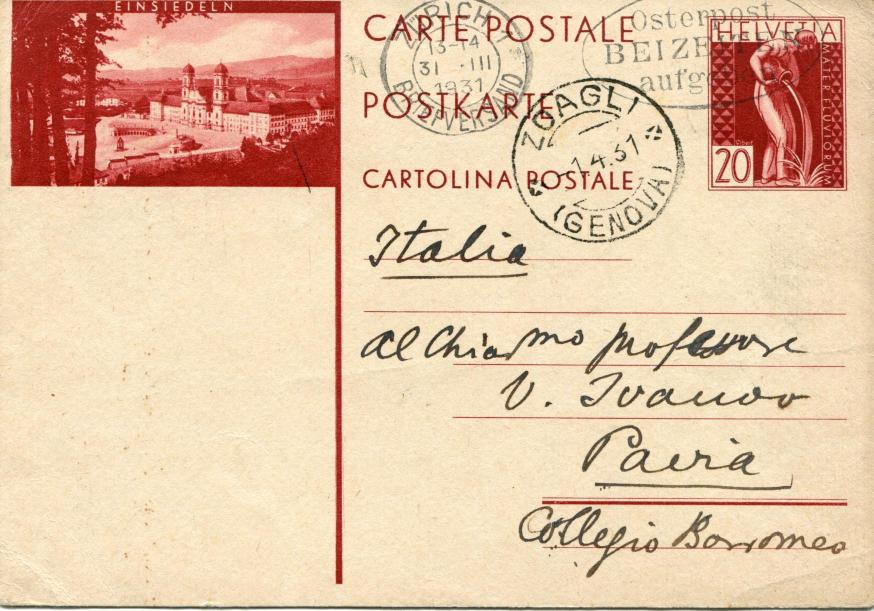 EINSIEDELN
CARTE POSTALE
POSTKARTE
CARTOLINA POSTALE
ZÜRICH 1
13-14
31.III
1931
BRIEFVERSAND
Osterpost
BEIZEITEN
HELVETIA
MATER FLUVIORUM
20
ZOAGLI
1.4.31
(GENOVA)
Italia
Al Chiarmo professore
V. Ivanov
Pavia
Collegio Borromeo